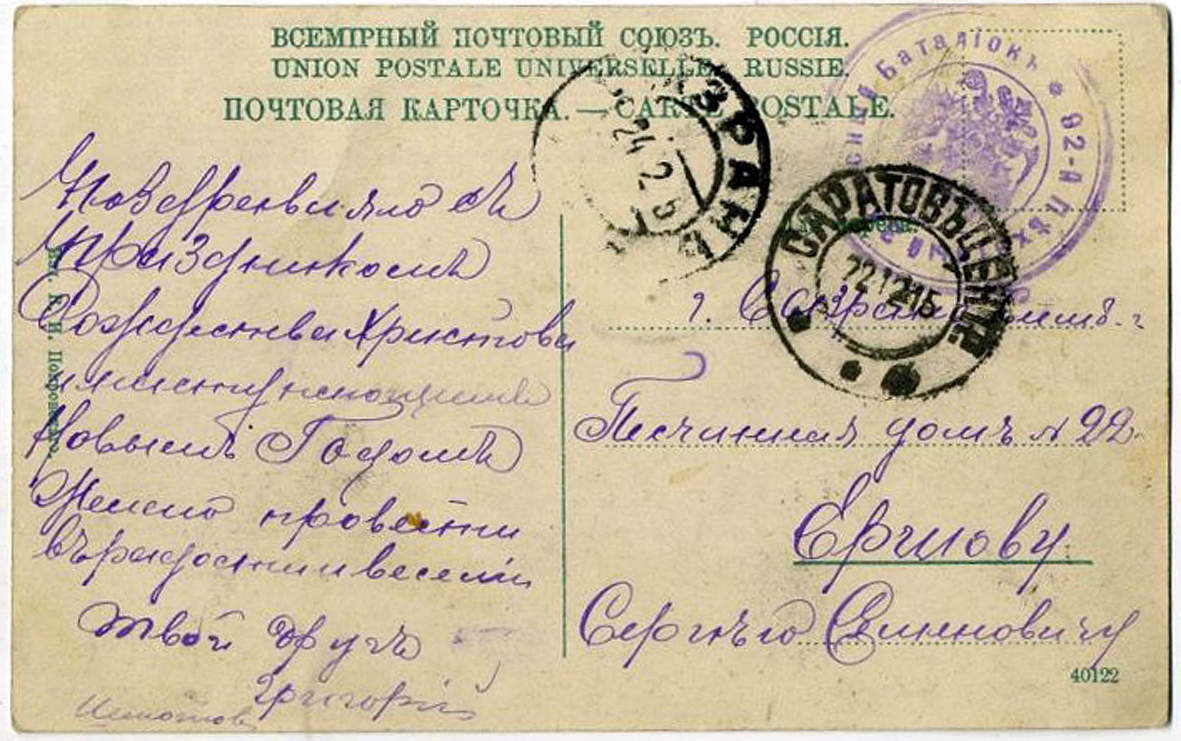 ВСЕМІРНЫЙ ПОЧТОВЫЙ СОЮЗЪ. РОССІЯ.
UNION POSTALE UNIVERSELLE RUSSIE.
ПОЧТОВАЯ КАРТОЧКА. — CARTE POSTALE.
Баталіонъ * 92-й пѣх
ЗРАНЬ
24 2 5
САРАТОВЪ ЦЕНТР.
22 12 15
Поздровляю съ
Праздникомъ
Рождества Христова
и наступающимъ
Новымъ Годомъ
Желаю провести
въ радости и веселіи
твой другъ
Григорій
г. Сызрань Симб. г
Песчанная домъ № 22
Ерчлову
Сергѣю Семеновичу
40122